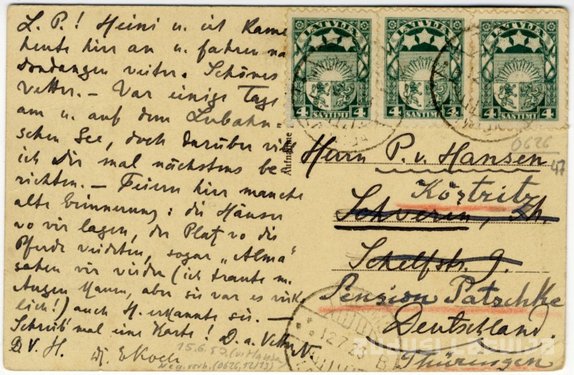 L. P.! Heini u. ich kamen
heute hier an u. fahren n.
Dondangen weiter. Schönes
Wetter. – War einige Tage
am u. auf dem Lubahn-
schen See, doch darüber will
ich Dir mal nächstens be-
richten. – Feiern hier manche
alte Erinnerung: die Häuser
wo wir lagen, der Platz wo die
Pferde weideten, sogar „Alma"
sahen wir wieder (ich traute m.
Augen kaum, aber sie war es wirk-
lich!) auch H. erkannte sie –
Schreib' mal eine Karte! D. a.
B. v. H.
LATVIJA LATVIJA LATVIJA
4 SANTIMI 4
4 SANTIMI 4
4 SANTIMI 4
0626
47
Aufnahme
Herrn P. v. Hansen
Köstritz
Schwerin,
Schelfstr. 9.
Pension Patschke
Deutschland
Thüringen
12.7.2
15.6.
(0626, 1212)